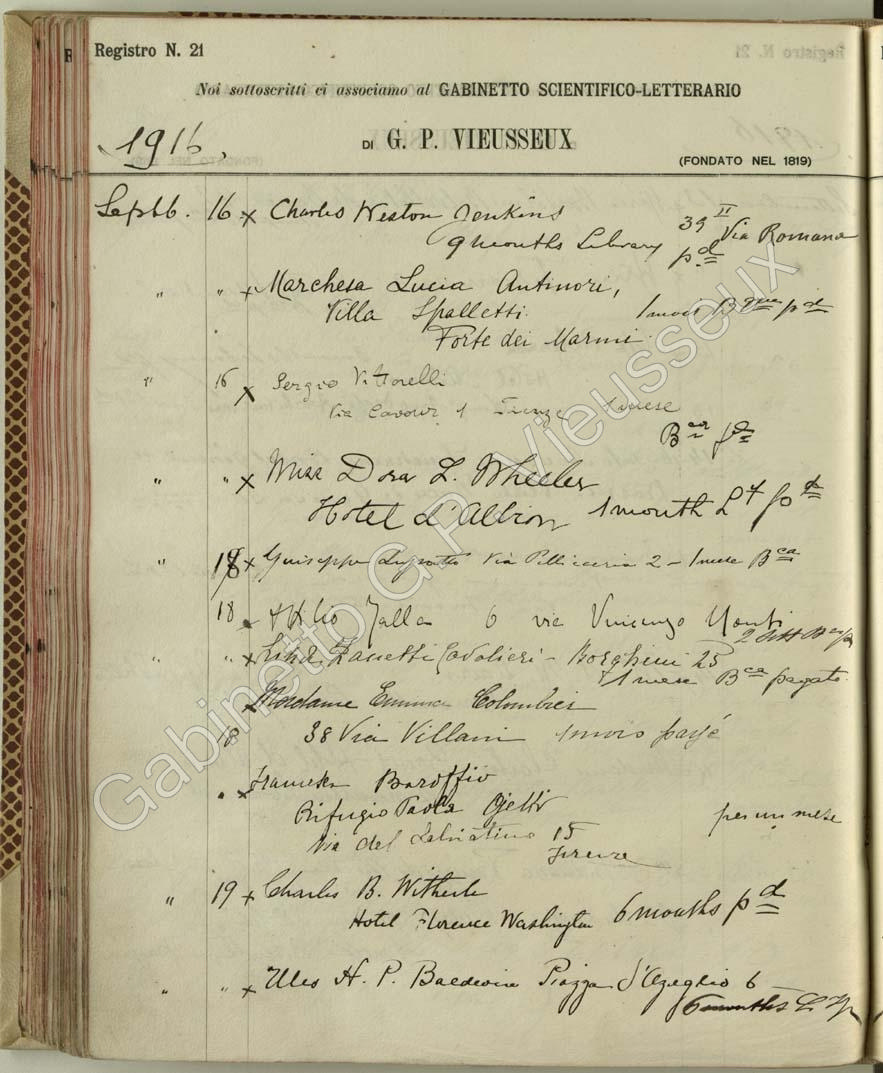 Registro N. 21
Noi sottoscritti ci associamo al GABINETTO SCIENTIFICO-LETTERARIO
1916, DI G. P. VIEUSSEUX
(FONDATO NEL 1819)
16 x Charles Weston Jenkins 39 II Via Romana
9 months Library pd
" " x Marchesa Lucia Antinori,
Villa Spalletti 1 mois pd
Forte dei Marmi
" 16 x Sergio Vittorelli
Via Cavour 1 Firenze 1 mese
" " x Miss Dora L. Wheeler
Hotel d'Albion 1 month
" 18 x Guiseppe Via Pellicceria 2 - 1 mese Bca
18 Attilio Zalla 6 via Vincenzo Monti
" " x Zanetti Cavalieri - Borghini 25
1 mese Bca pagato
Madame Emma Colombier
18 38 Via Villani 1 mois payé
x Francesca Baroffio
Rifugio Paola Ojetti per un mese
Via del 15
Firenze
" 19 x Charles B.
Hotel Florence Washington 6 months pd
" " x H. P. Baldwin Piazza d'Azeglio 6
6 months
Gabinetto G.P. Vieusseux